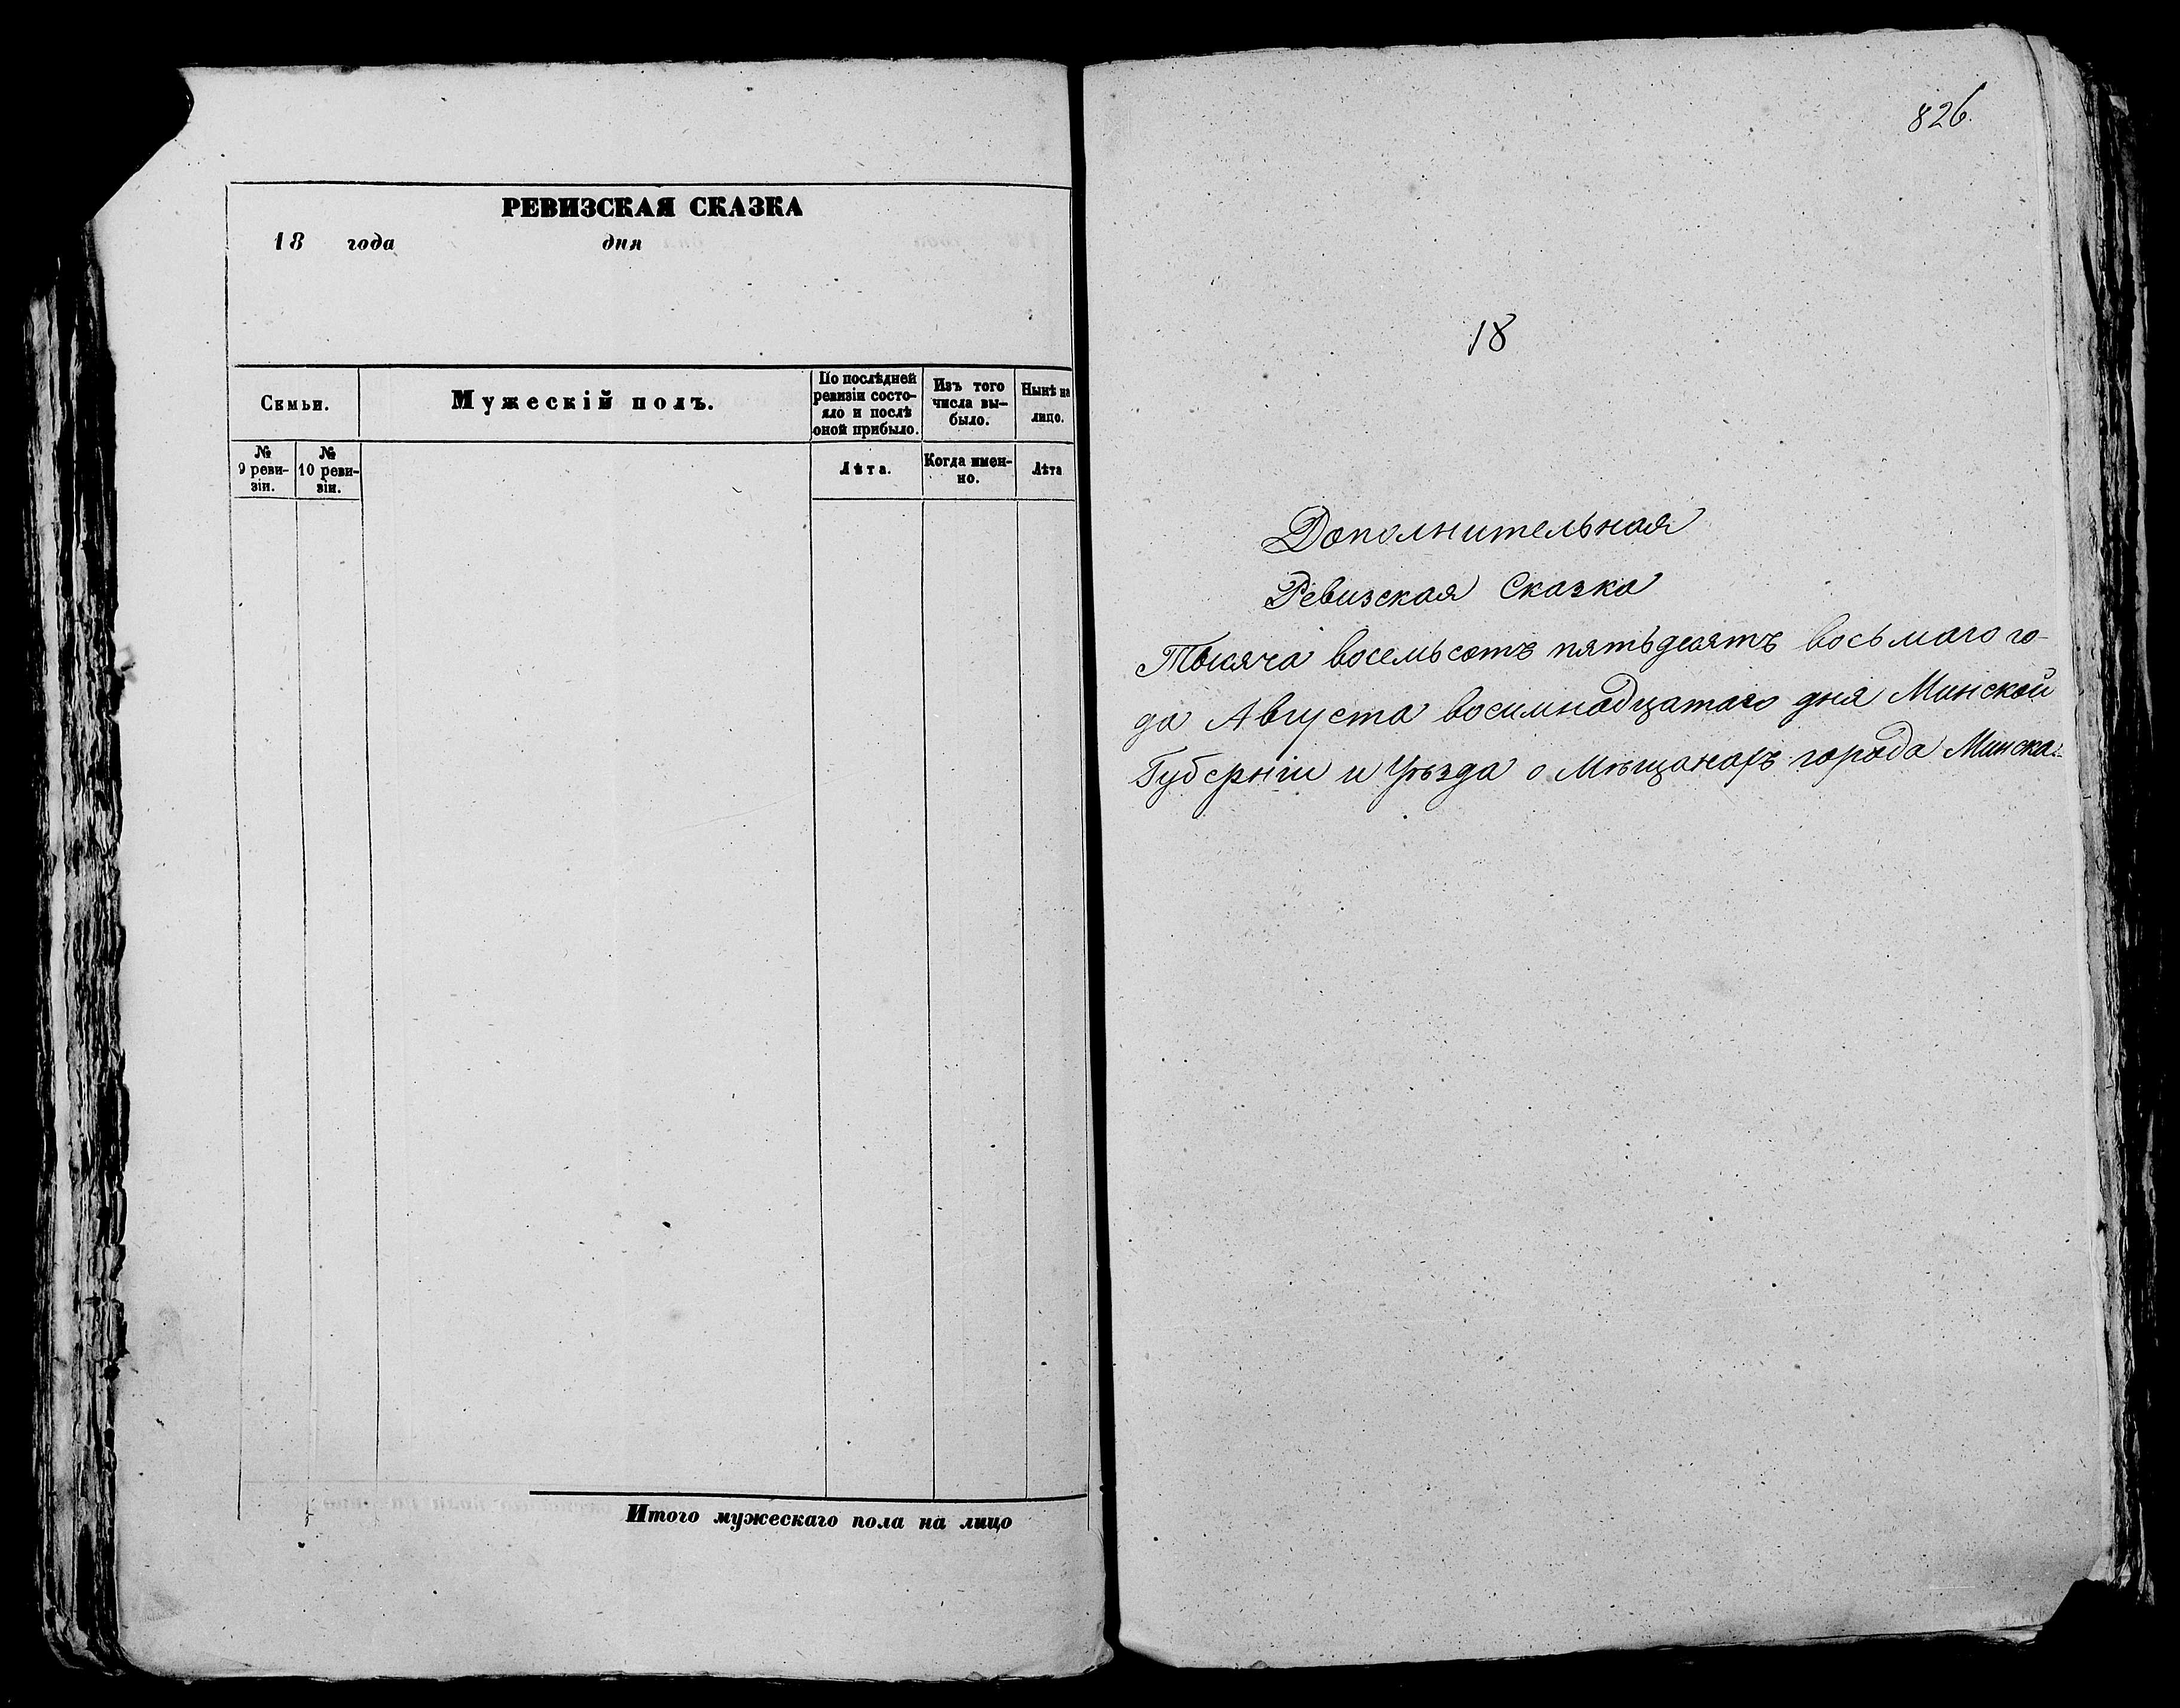 РЕВИЗСКАЯ СКАЗКА
18 года дня
Семьи.
Мужескій полъ.
По послѣдней
ревизіи состо-
яло и послѣ
оной прибыло.
Изъ того
числа вы-
было.
Нынѣ на
лицо.
№
9 реви-
зіи.
№
10 реви-
зіи.
Лѣта.
Когда имен-
но.
Лѣта
Итого мужескаго пола на лицо
826.
18
Дополнительная
Ревизская Сказка
Тысяча восемьсотъ пятьдесятъ восьмаго го-
да Августа восимнадцатаго дня Минской
Губерніи и Уѣзда о Мѣщанахъ города Минска.